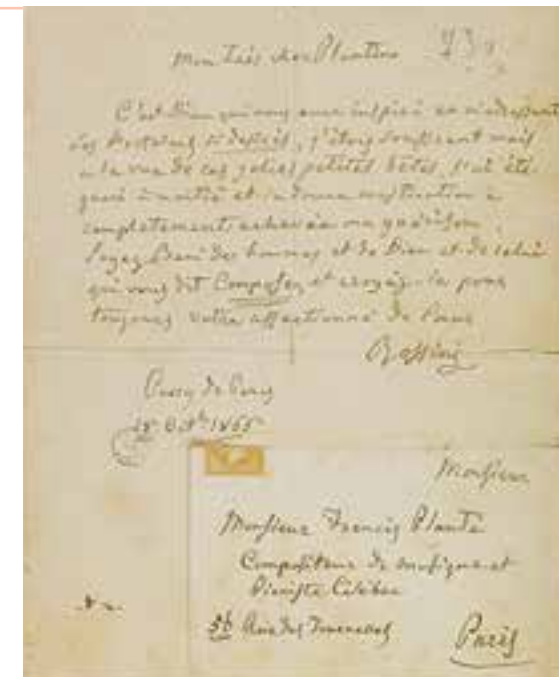 mon très cher Plantino
C'est Dieu qui vous aura inspiré en m'adressant
les Hortolans si désirés, j'étais souffrant mais
a la vue de ces jolies petites bêtes, j'ai été
guéri à moitié et la donne
complètement achevée ma guérison.
Soyez Beni des hommes et de Dieu et de celui
qui vous dit Composez et croyez-le pour
toujours votre affectionné de Coeur
Rossini
Passy de Paris
18 Oct. 1865
Monsieur
Monsieur Francis Planté
Compositeur de musique et
Pianiste Célèbre
56 Rue des Tournelles
Paris